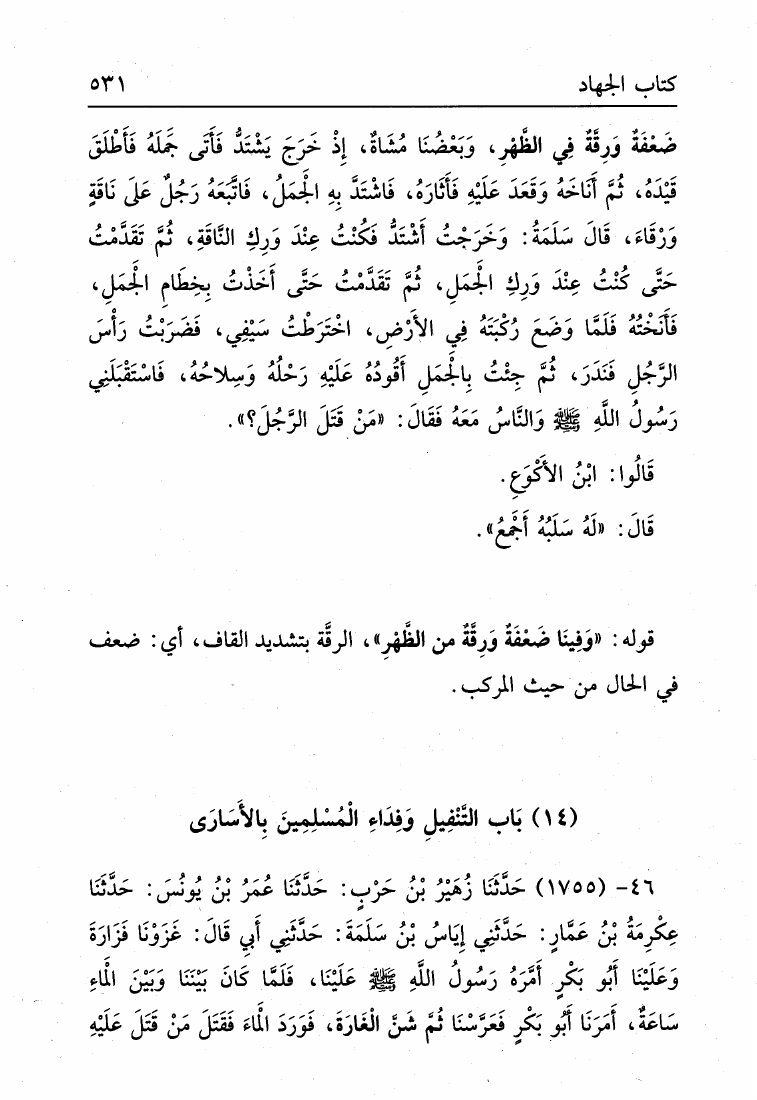 كتاب الجهاد ٥٣١
ضَعْفَةٌ وَرِقَّةٌ فِي الظَّهْرِ، وَبَعْضُنَا مُشَاةٌ، إِذْ خَرَجَ يَشْتَدُّ فَأَتَى جَمَلَهُ فَأَطْلَقَ
قَيْدَهُ، ثُمَّ أَنَاخَهُ وَقَعَدَ عَلَيْهِ فَأَثَارَهُ، فَاشْتَدَّ بِهِ الْجَمَلُ، فَاتَّبَعَهُ رَجُلٌ عَلَى نَاقَةٍ
وَرْقَاءَ، قَالَ سَلَمَةُ: وَخَرَجْتُ أَشْتَدُّ فَكُنْتُ عِنْدَ وَرِكِ النَّاقَةِ، ثُمَّ تَقَدَّمْتُ
حَتَّى كُنْتُ عِنْدَ وَرِكِ الْجَمَلِ، ثُمَّ تَقَدَّمْتُ حَتَّى أَخَذْتُ بِخِطَامِ الْجَمَلِ،
فَأَنَخْتُهُ فَلَمَّا وَضَعَ رُكْبَتَهُ فِي الأَرْضِ، اخْتَرَطْتُ سَيْفِي، فَضَرَبْتُ رَأْسَ
الرَّجُلِ فَنَدَرَ، ثُمَّ جِئْتُ بِالْجَمَلِ أَقُودُهُ عَلَيْهِ رَحْلُهُ وَسِلاحُهُ، فَاسْتَقْبَلَنِي
رَسُولُ اللَّهِ ﷺ وَالنَّاسُ مَعَهُ فَقَالَ: «مَنْ قَتَلَ الرَّجُلَ؟».
قَالُوا: ابْنُ الأَكْوَعِ.
قَالَ: «لَهُ سَلَبُهُ أَجْمَعُ».
قوله: «وَفِينَا ضَعْفَةٌ وَرِقَّةٌ من الظَّهْرِ»، الرقَّة بتشديد القاف، أي: ضعف
في الحال من حيث المركب.
(١٤) بَاب التَّنْفِيلِ وَفِدَاءِ الْمُسْلِمِينَ بِالأَسَارَى
٤٦- (١٧٥٥) حَدَّثَنَا زُهَيْرُ بْنُ حَرْبٍ: حَدَّثَنَا عُمَرُ بْنُ يُونُسَ: حَدَّثَنَا
عِكْرِمَةُ بْنُ عَمَّارٍ: حَدَّثَنِي إِيَاسُ بْنُ سَلَمَةَ: حَدَّثَنِي أَبِي قَالَ: غَزَوْنَا فَزَارَةَ
وَعَلَيْنَا أَبُو بَكْرٍ أَمَّرَهُ رَسُولُ اللَّهِ ﷺ عَلَيْنَا، فَلَمَّا كَانَ بَيْنَنَا وَبَيْنَ الْمَاءِ
سَاعَةٌ، أَمَرَنَا أَبُو بَكْرٍ فَعَرَّسْنَا ثُمَّ شَنَّ الْغَارَةَ، فَوَرَدَ الْمَاءَ فَقَتَلَ مَنْ قَتَلَ عَلَيْهِ